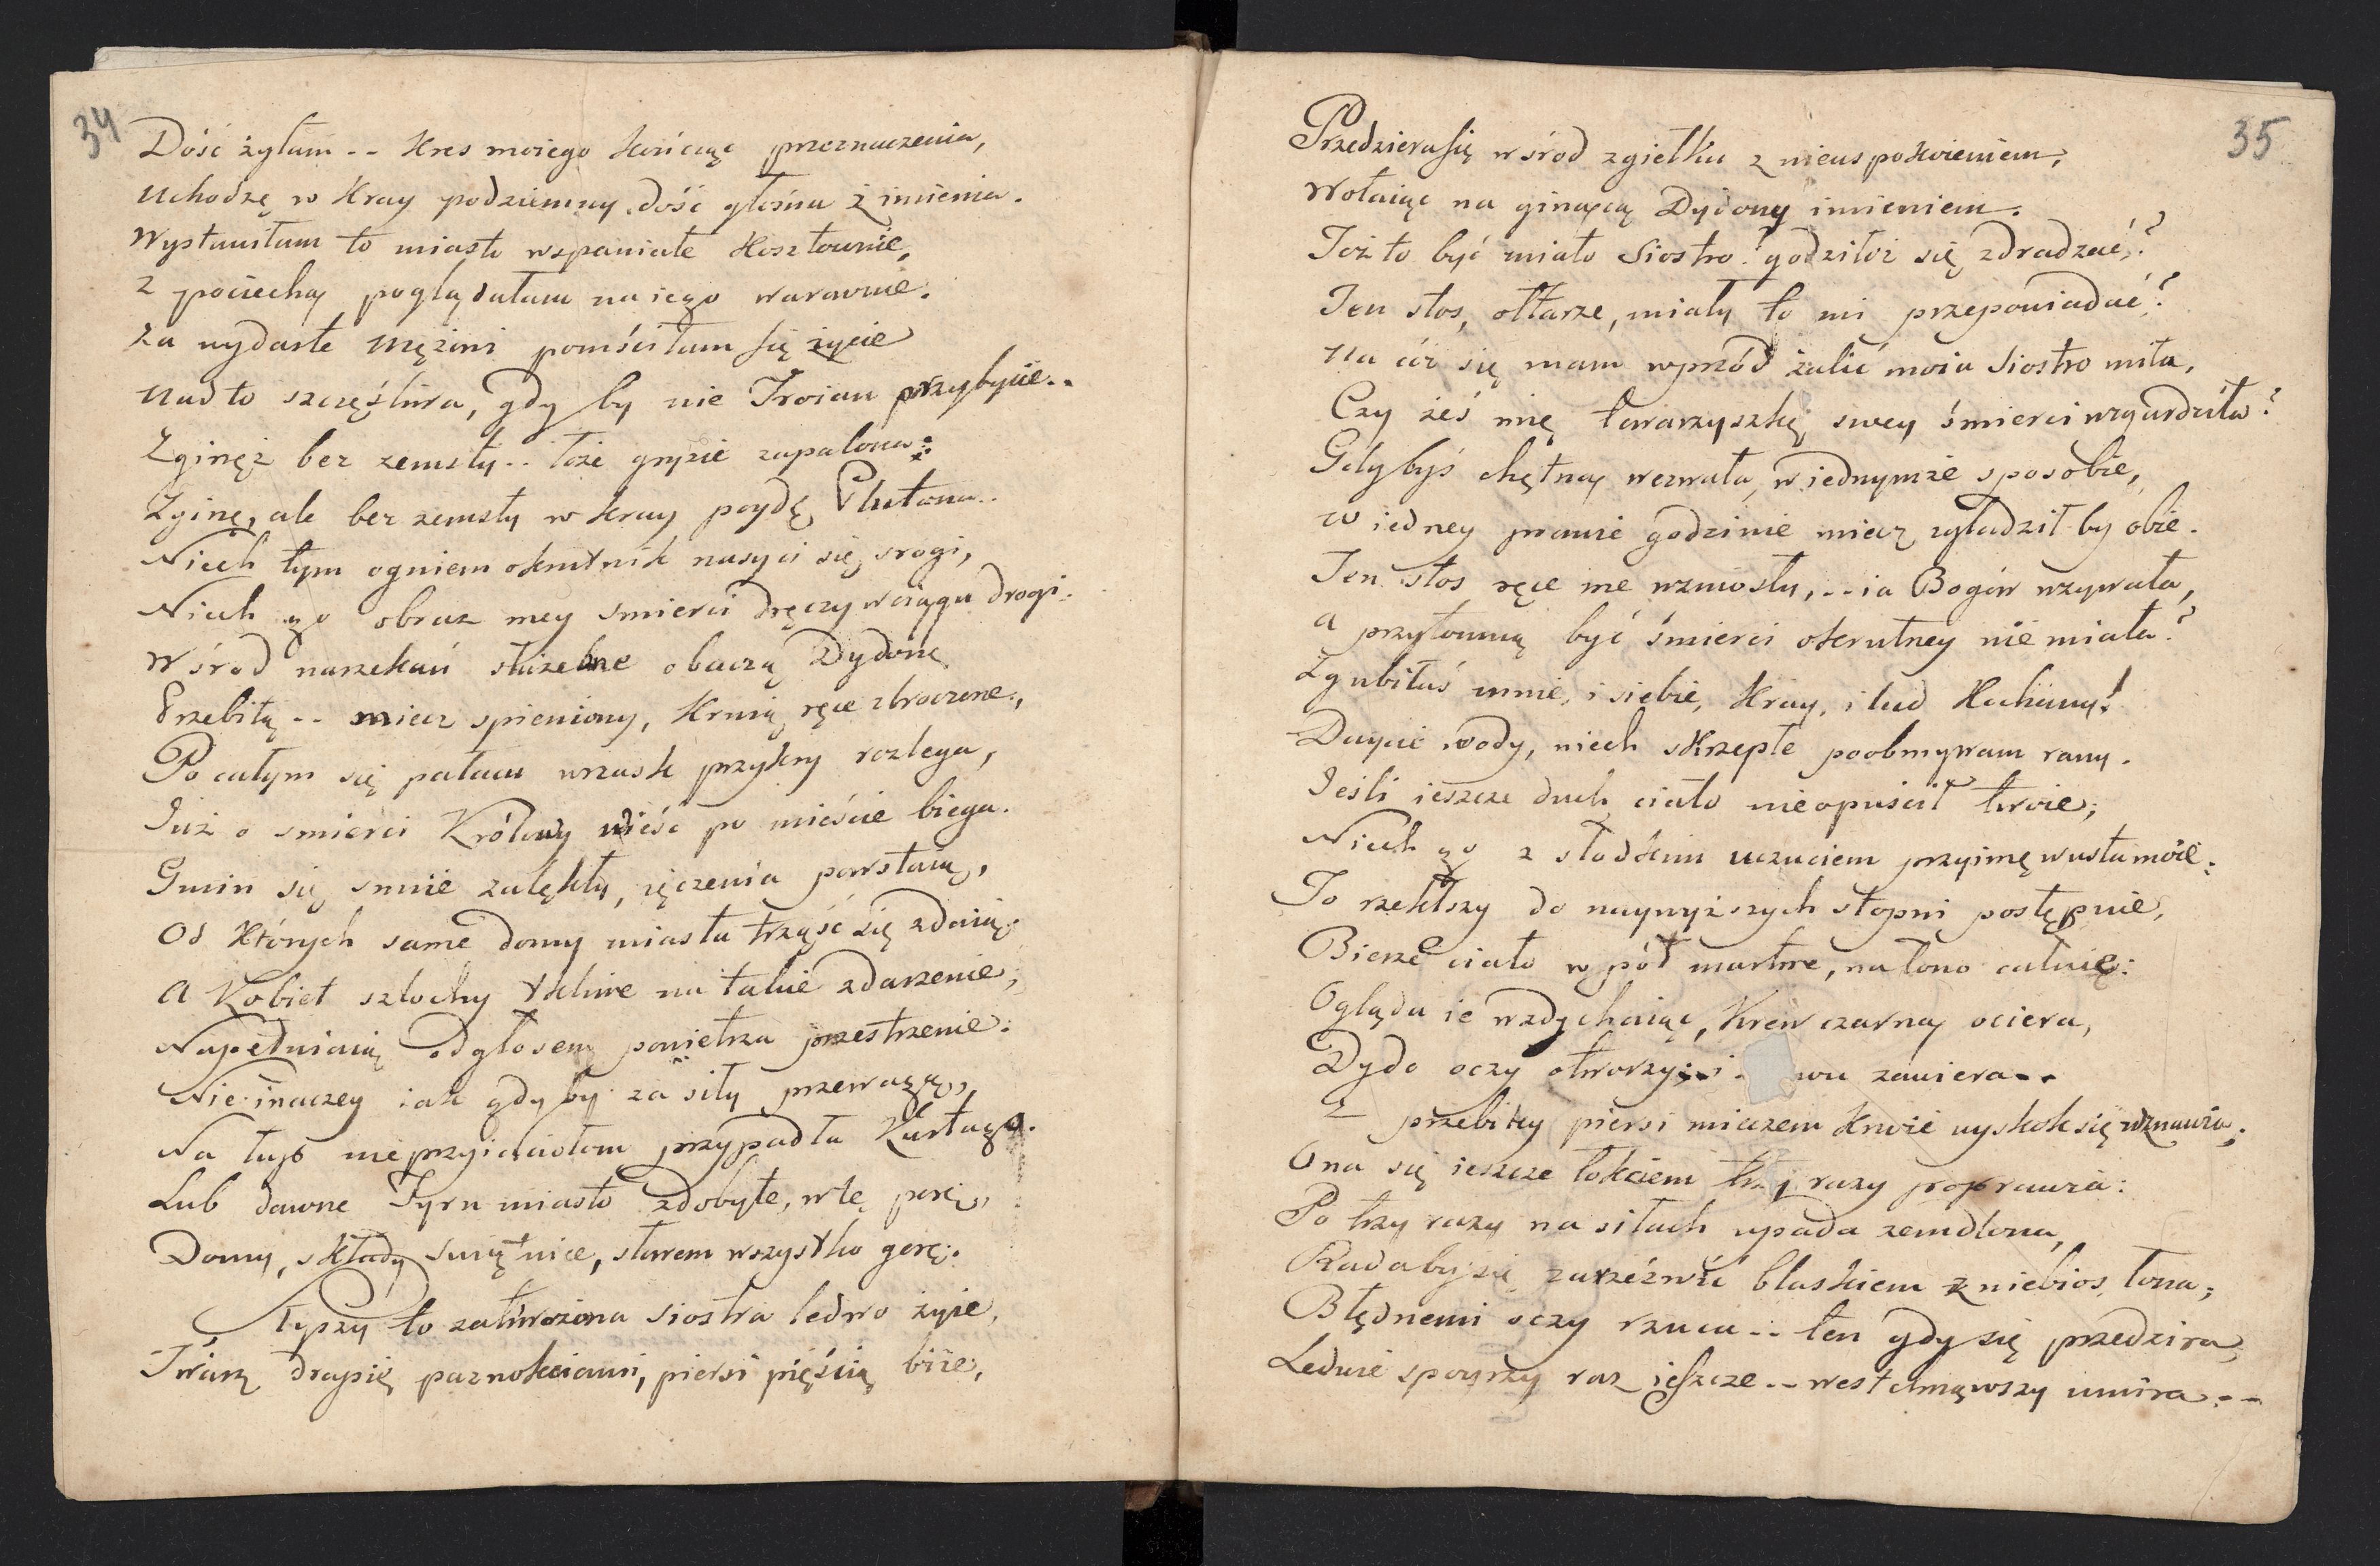 34
Dość żyłam -- kres moiego kończąc przeznaczenia,
Uchodzę w kray podziemny dość głośna z imienia.
Wystawiłam to miasto wspaniałe kosztownie,
Z pociechą poglądałam na iego warownie.
Za wydarte mężowi pomściłam się życie
Nad to szczęśliwa, gdy by nie Troian przybycie..
Zginęż bez zemsty.. łoże gryzie zapalona:
Zginę, ale bez zemsty w kray poydę Plutona..
Niech tym ogniem okrutnik nasyci się srogi,
Niech go obraz mey smierci dręczy wciągu drogi.
Wśrod narzekań służebne obaczą Dydonę
Przebitą -- miecz spieniony, krwią ręce zbroczone,
Po całym się pałacu wrzask przykry rozlega,
Już o smierci Królowy wieść po mieście biega.
Gmin się snuie zalękły, ięczenia powstaią,
Od których same domy miasta trząść się zdaią.
A Kobiet szlochy tkliwe na takie zdarzenie,
Napełniaią odgłosem powietrza przestrzenie.
Nie inaczey iak gdy by za siły przewagą,
Na łup nieprzyiaciołom przypadła Kartago.
Lub dawne Tyru miasto zdobyte, w tę porę,
Domy, składy swiątnice, słowem wszystko gore.
Słyszy to zatrwożona siostra ledwo żyie,
Twarz drapie paznokciami, piersi pięścią biie,
35
Przedziera się wśrod zgiełku z nieuspokoieniem,
Wołaiąc na ginącą Dydony imieniem.
Toż to być miało Siostro? godziłoż się zdradzać?
Ten stos, ołtarze, miały to mi przepowiadać?
Na cóż się mam wprzód żalić moia Siostro miła,
Czy żeś mię towarzyszką swey śmierci wzgardziła?
Gdybyś chętną wezwała, w iednymże sposobie,
W iedney prawie godzinie miecz zgładził by obie.
Ten stos ręce me wzniosły, -- ia Bogów wzywała,
A przytomną być śmierci okrutney nie miała?
Zgubiłaś mnie, i siebie, kray, i lud kochany!
Daycie wody, niech skrzepłe poobmywam rany.
Jeśli ieszcze duch ciało nieopuścił twoie;
Niech go z słodkim uczuciem przyimę w usta moie:
To rzekłszy do naywyższych stopni postępuie,
Bierze ciało w pół martwe, na łono całuie:
Ogląda ie wzdychaiąc, krew czarną ociera,
Dydo oczy otworzy -- i wu zawiera --
Z przebitey piersi mieczem krwie wyskok się wznawia;
Ona się ieszcze łokciem trzy razy poprawia:
Po trzy razy na siłach upada zemdlona,
Rada by się zarzeźwić blaskiem z niebios łona;
Błędnemi oczy rzuca -- ten gdy się przedzira,
Ledwie spoyrzy raz ieszcze -- westchnąwszy umira --